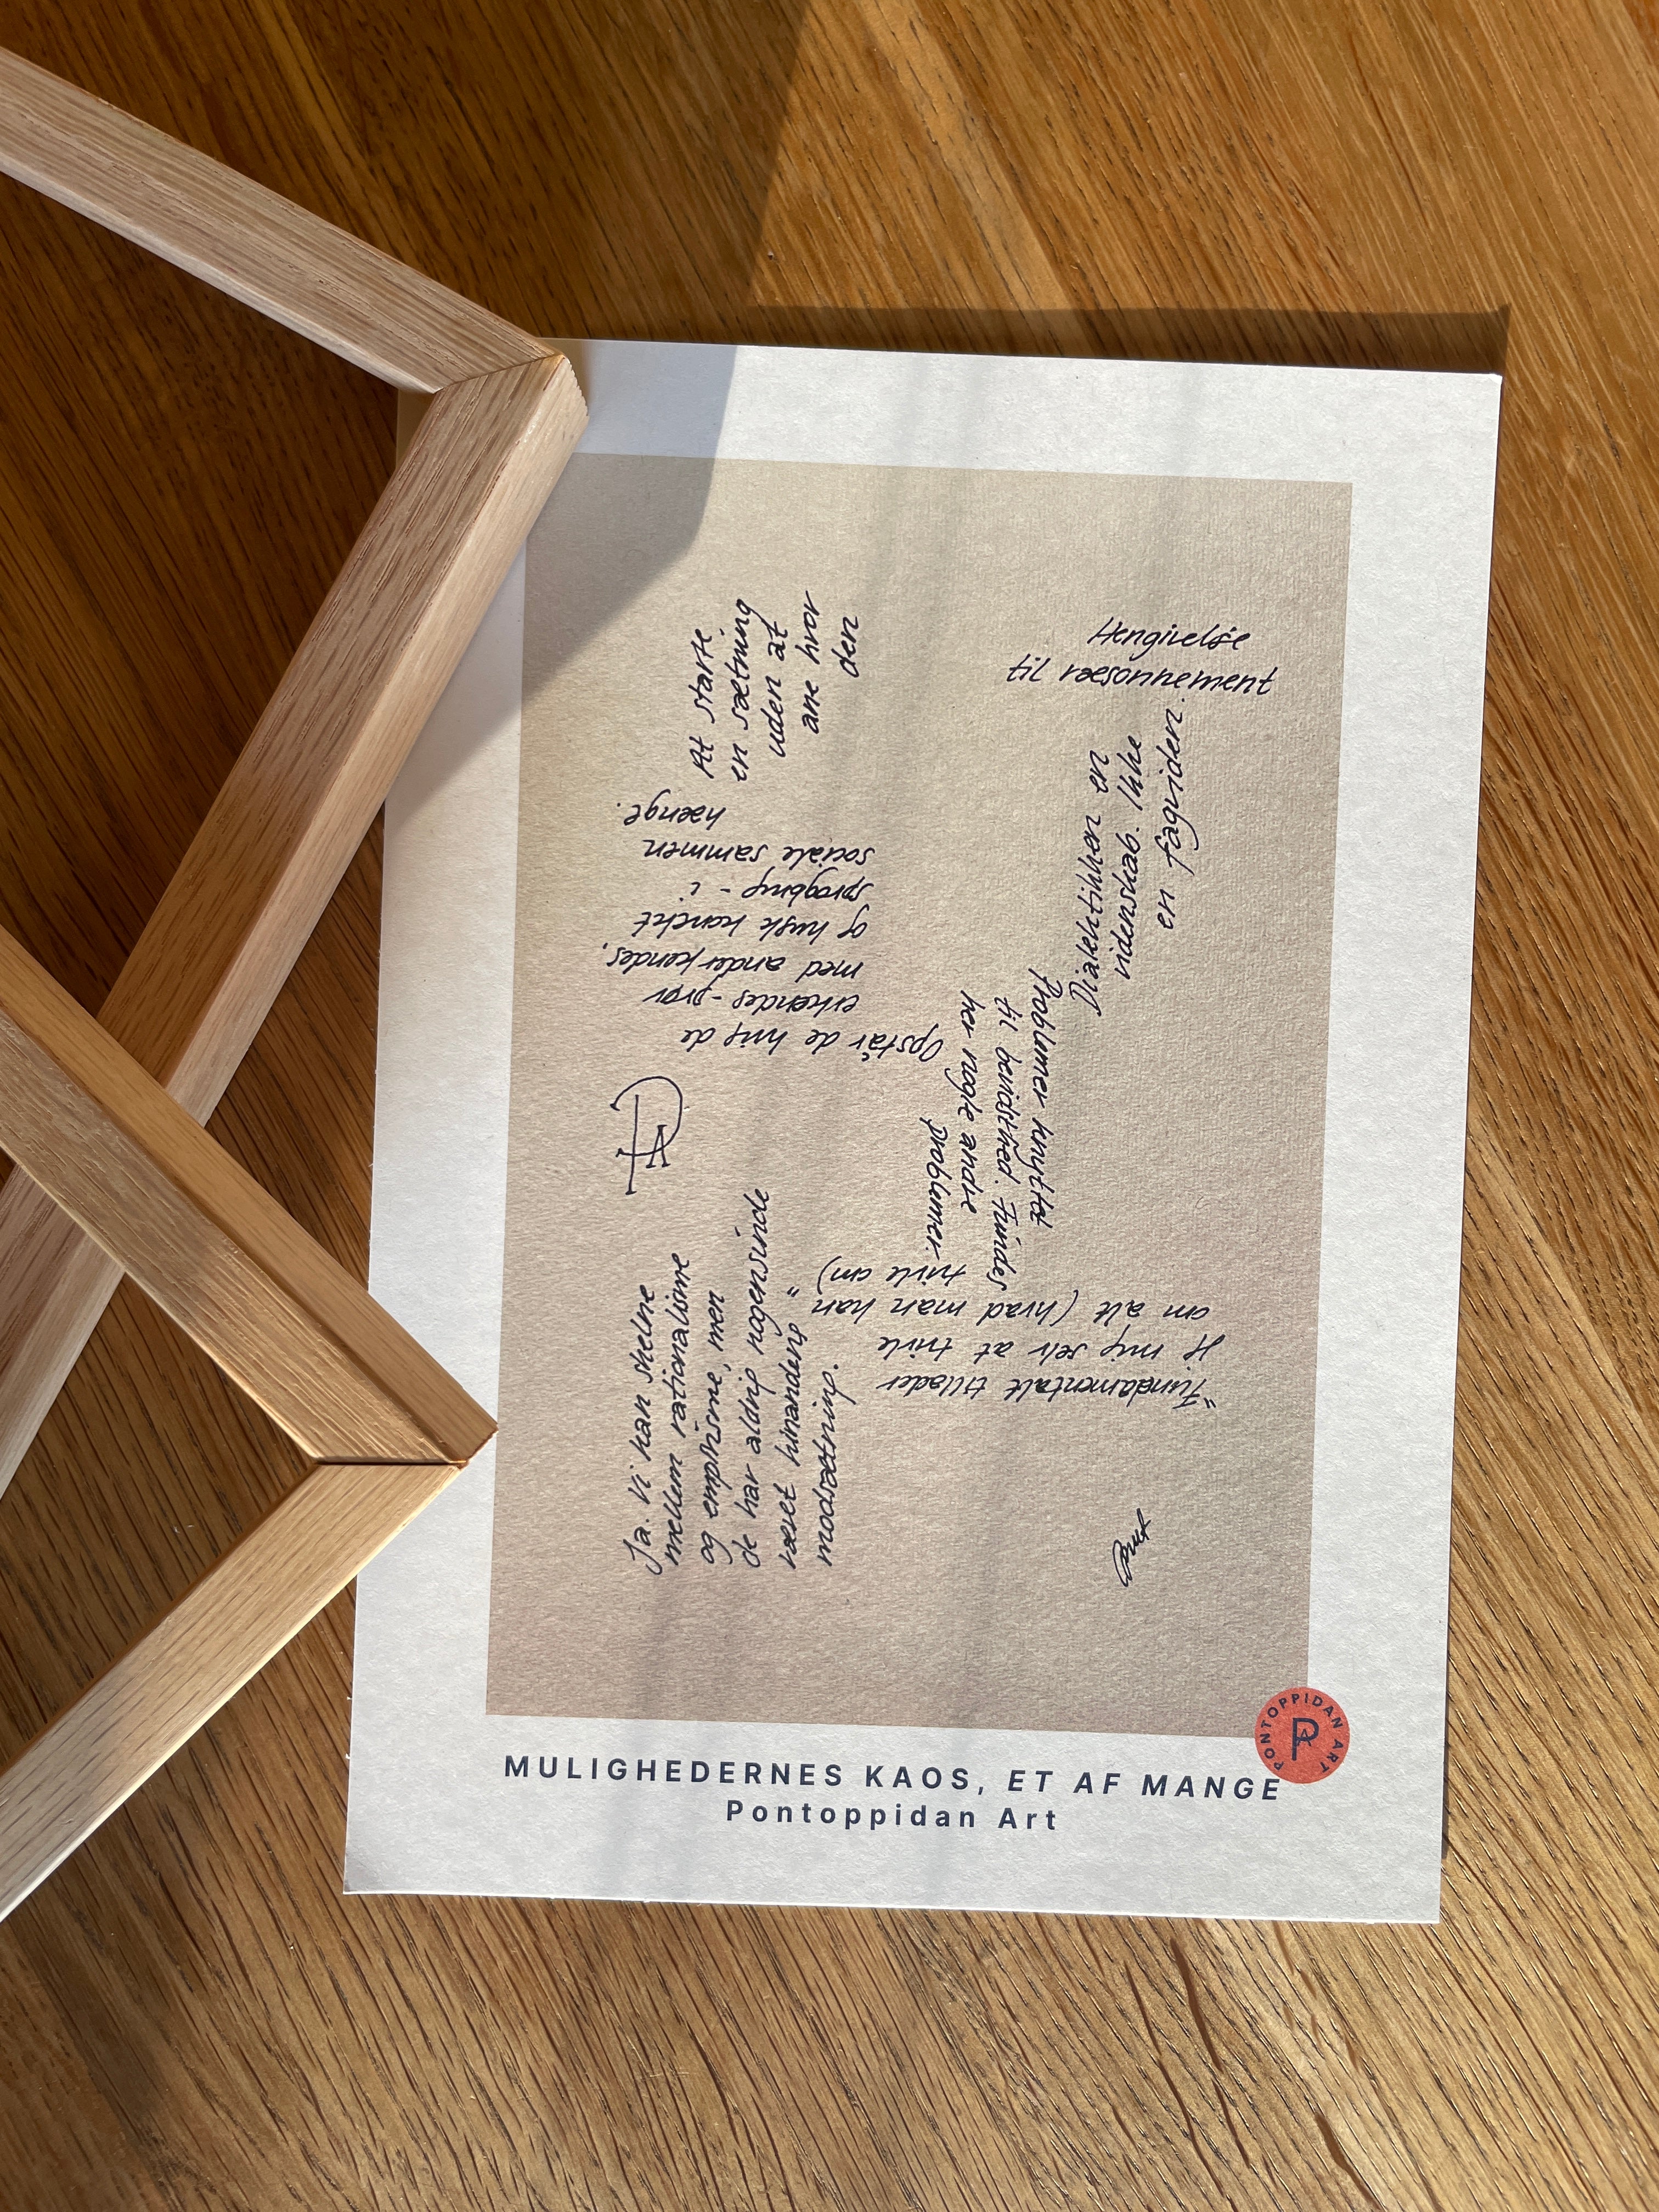 Hengivelse
til ræsonnement
At starte
en sætning
uden at
ane hvor
den
Dialektikken er
videnskab. Ikke
en fagviden.
Opstår de hvis de
erkendes - prøv
med anderkendes,
og husk konchit
sprogbrug - i
sociale sammen
hænge.
Problemer knyttet
til bevidsthed. Findes
her nogle andre
problumer.
"Fundamentalt tillader
jf mig selv at tvivle
om alt (hvad man kan
tvivle om)
"
Ja. Vi kan skelne
mellem rationalisme
og empirisme, men
de har aldrig nogensinde
været hinandens
modsætning.
MULIGHEDERNES KAOS, ET AF MANGE
Pontoppidan Art
PONTOPPIDAN ART
PA